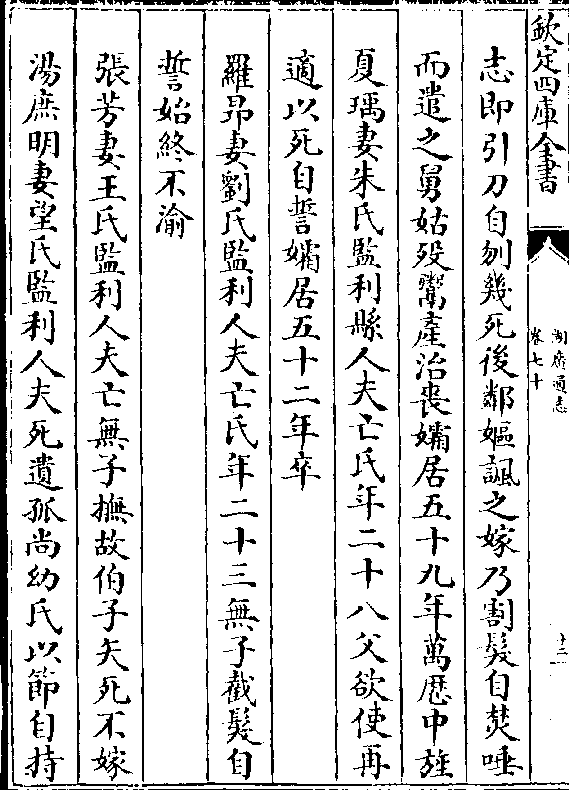 欽定四庫全書
湖廣通志
卷七十
十三
志即引刀自刎幾死後鄰嫗諷之嫁乃割髮自焚唾
而遣之舅姑殁鬻產治喪孀居五十九年萬厯中旌
夏瑀妻朱氏監利縣人夫亡氏年二十八父欲使再
適以死自誓孀居五十二年卒
羅昻妻劉氏監利人夫亡氏年二十三無子截髮自
誓始終不渝
張芳妻王氏監利人夫亡無子撫故伯子矢死不嫁
湯庶明妻望氏監利人夫死遺孤尚幼氏以節自持